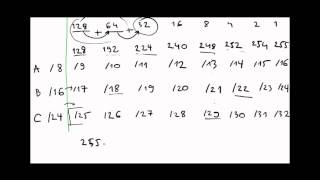 128 + 64 + 32 16 8 4 2 1
128 192 224 240 248 252 254 255
A /8 /9 /10 /11 /12 /13 /14 /15 /16
B /16 /17 /18 /19 /20 /21 /22 /23 /24
C /24 /25 126 /27 /28 /29 /30 /31 /32
255.